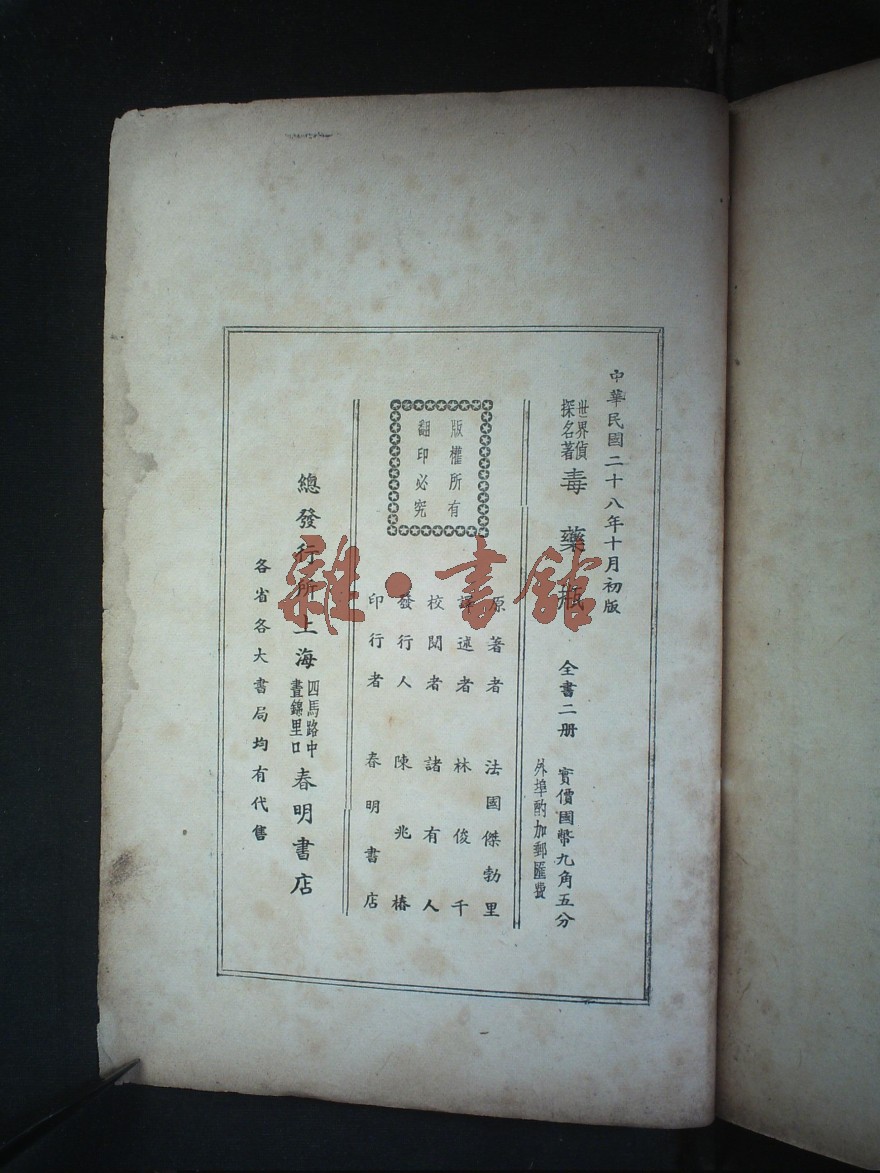 中華民國二十八年十月初版
世界偵探名著 毒藥瓶 全書二册 實價國幣九角五分
外埠酌加郵匯費
版權所有
翻印必究
原著者 法國傑勃里
譯述者 林俊千
校閱者 諸有人
發行人 陳兆椿
印行者 春明書店
總發行所上海 四馬路中晝錦里口 春明書店
各省各大書局均有代售
雜·書館